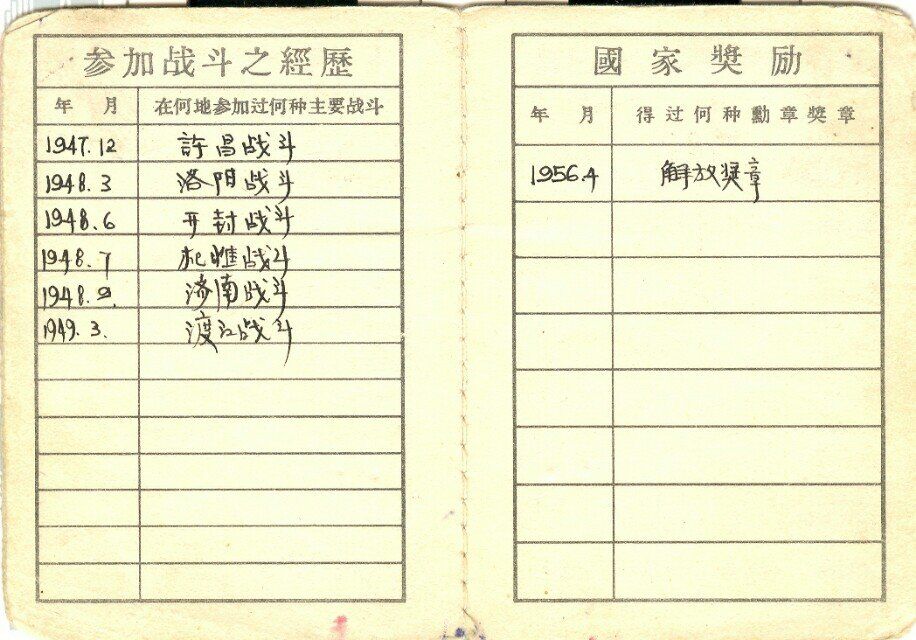 参加战斗之經歷
年 月 在何地参加过何种主要战斗
1947.12 許昌战斗
1948.3 洛阳战斗
1948.6 开封战斗
1948.7 杞睢战斗
1948.9. 济南战斗
1949.3. 渡江战斗
國家獎励
年 月 得过何种勳章獎章
1956.4 解放奖章